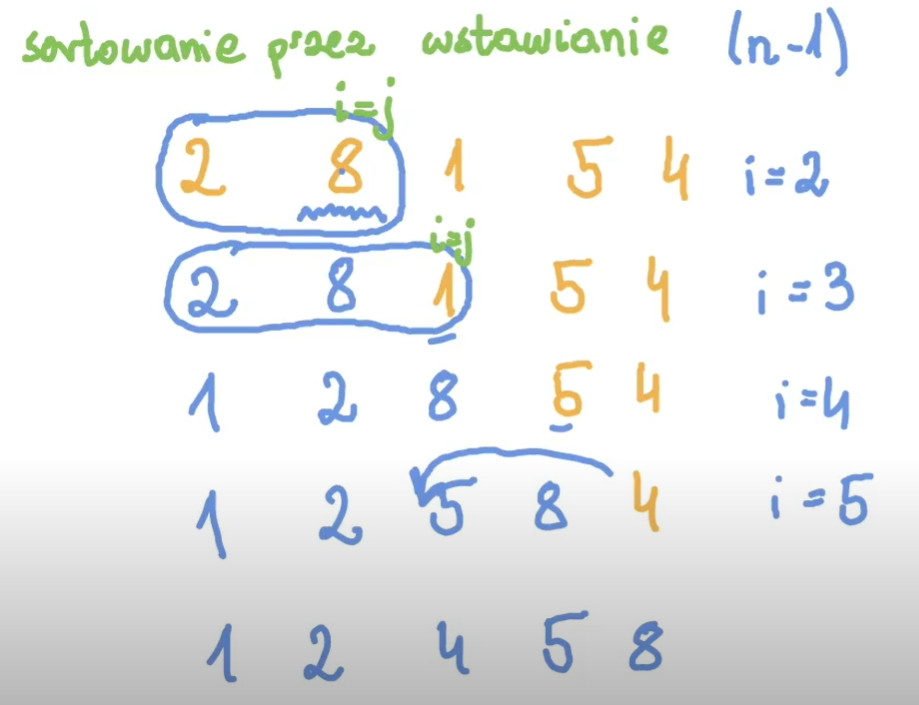 sortowanie przez wstawianie (n-1)
i=j
2 8 1 5 4 i=2
i=j
2 8 1 5 4 i=3
1 2 8 5 4 i=4
1 2 5 8 4 i=5
1 2 4 5 8